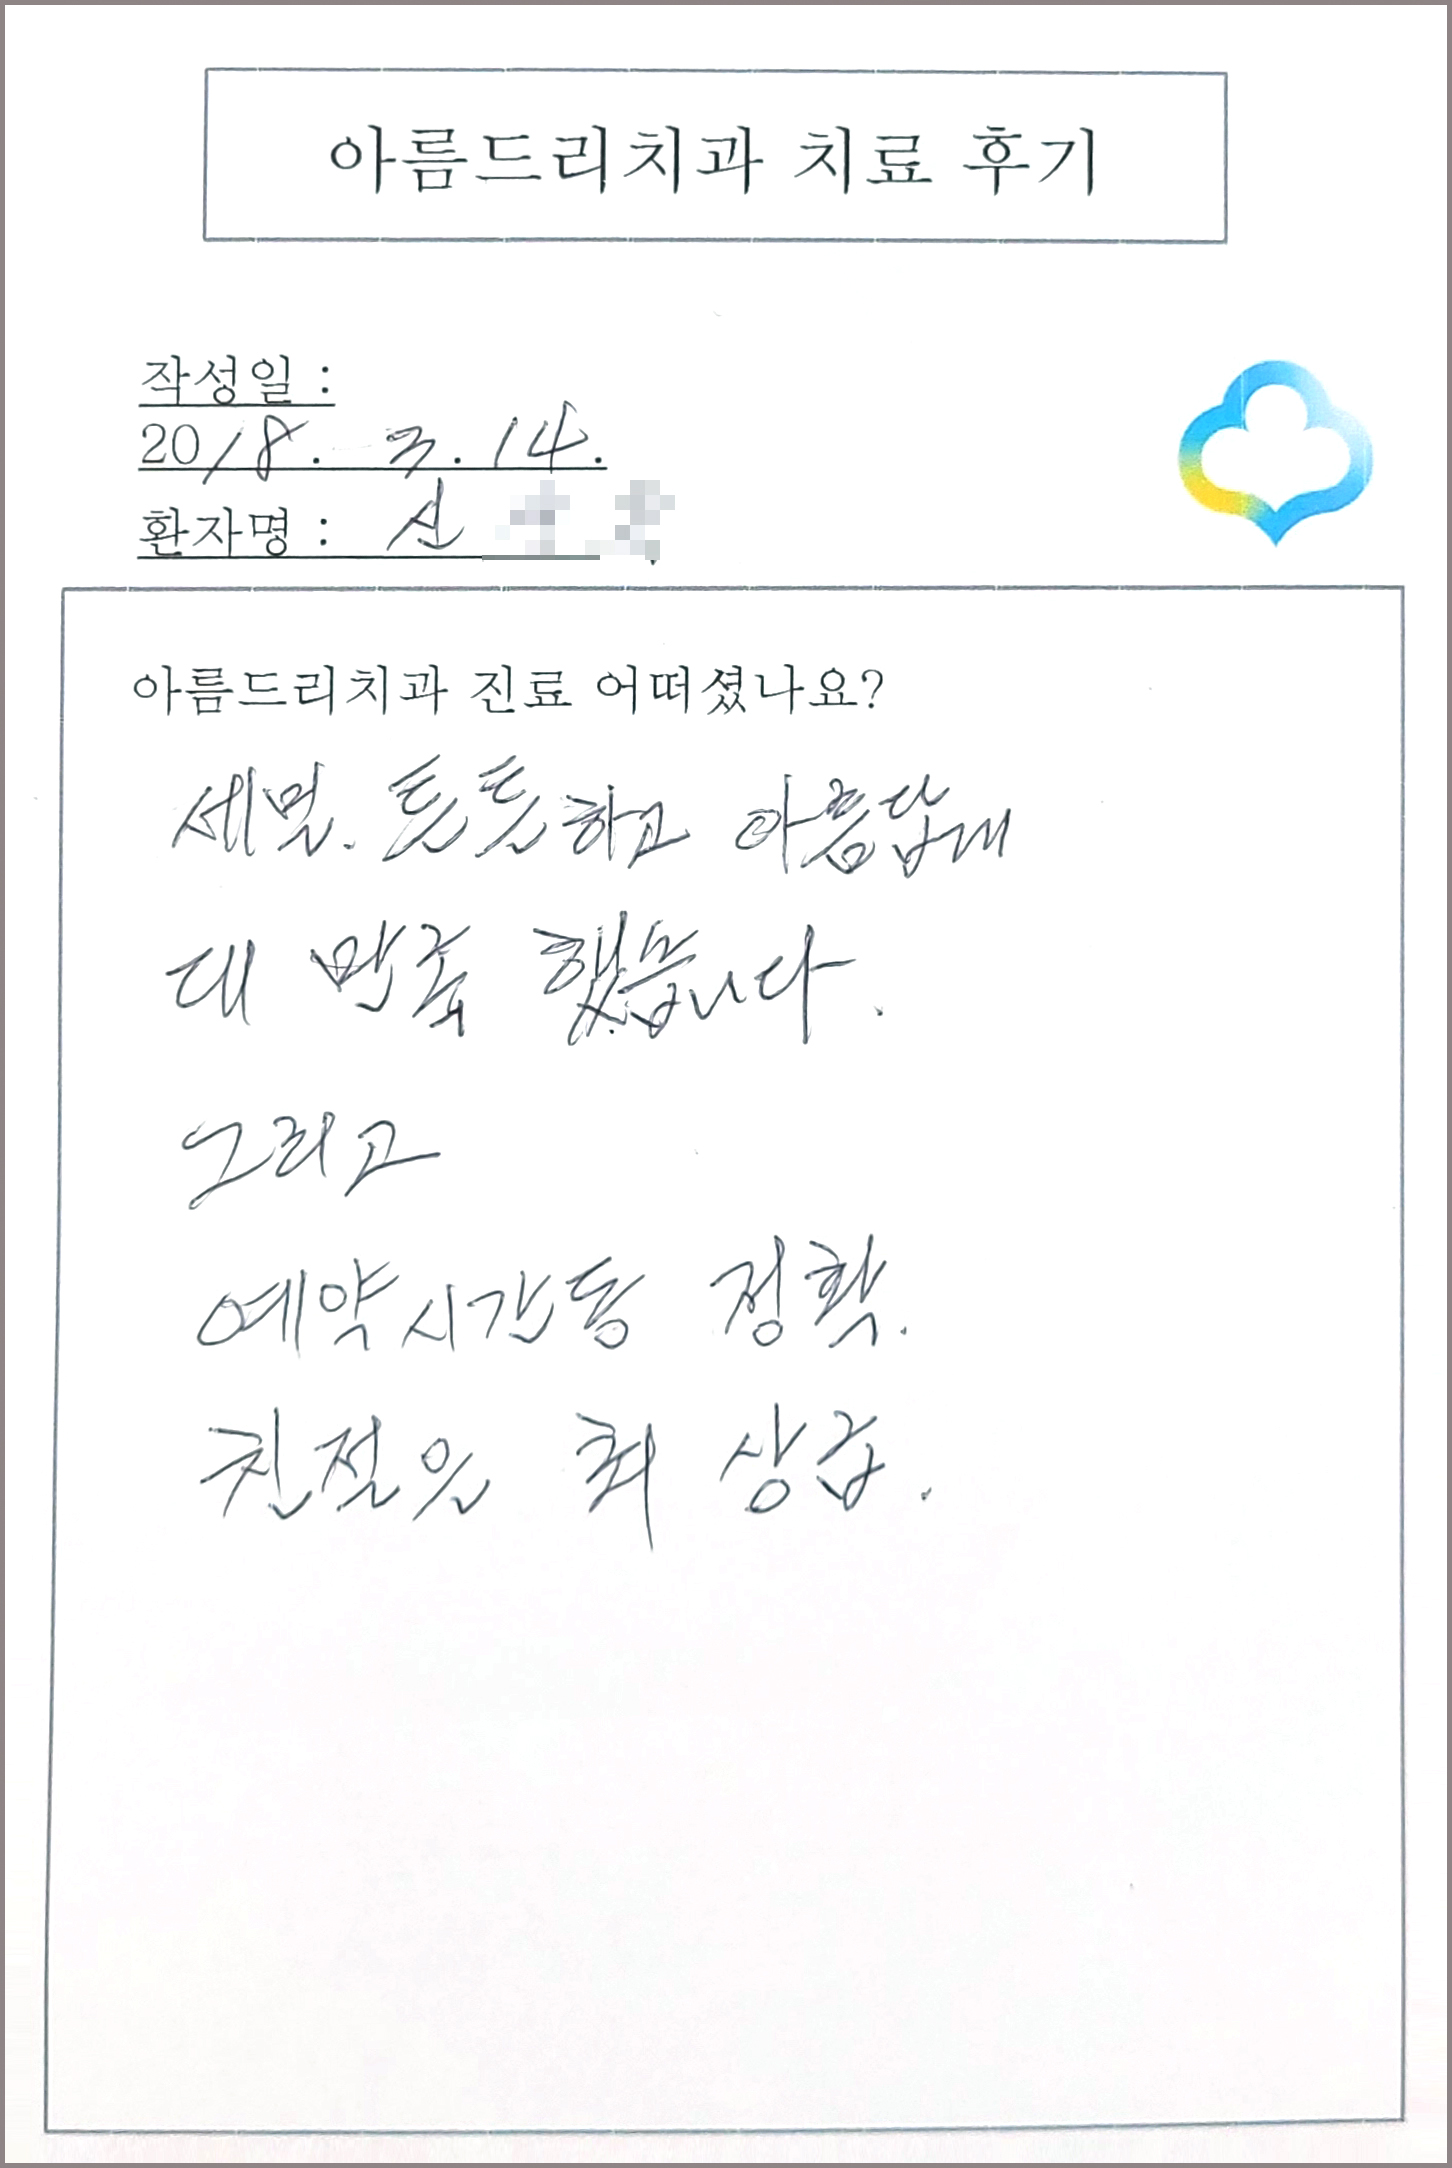 아름드리치과 치료 후기
작성일 :
2018. 3. 14.
환자명 : 신
아름드리치과 진료 어떠셨나요?
세밀. 튼튼하고 아름답게
대 만족 했습니다.
그리고
예약시간등 정확.
친절은 최 상급.